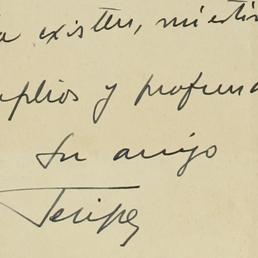 a existen,
plios y profund
Su amigo
Felipe